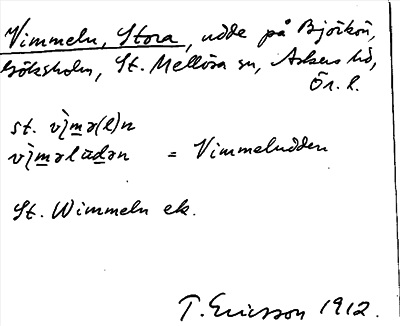 Vimmeln, Stora, udde på Björkön,
Göksholm, St. Mellösa sn, Askers hd,
Ör. l.
st. vìmə(l)n
vìməlʉdən = Vimmeludden
St. Wimmeln ek.
T. Ericsson 1912.